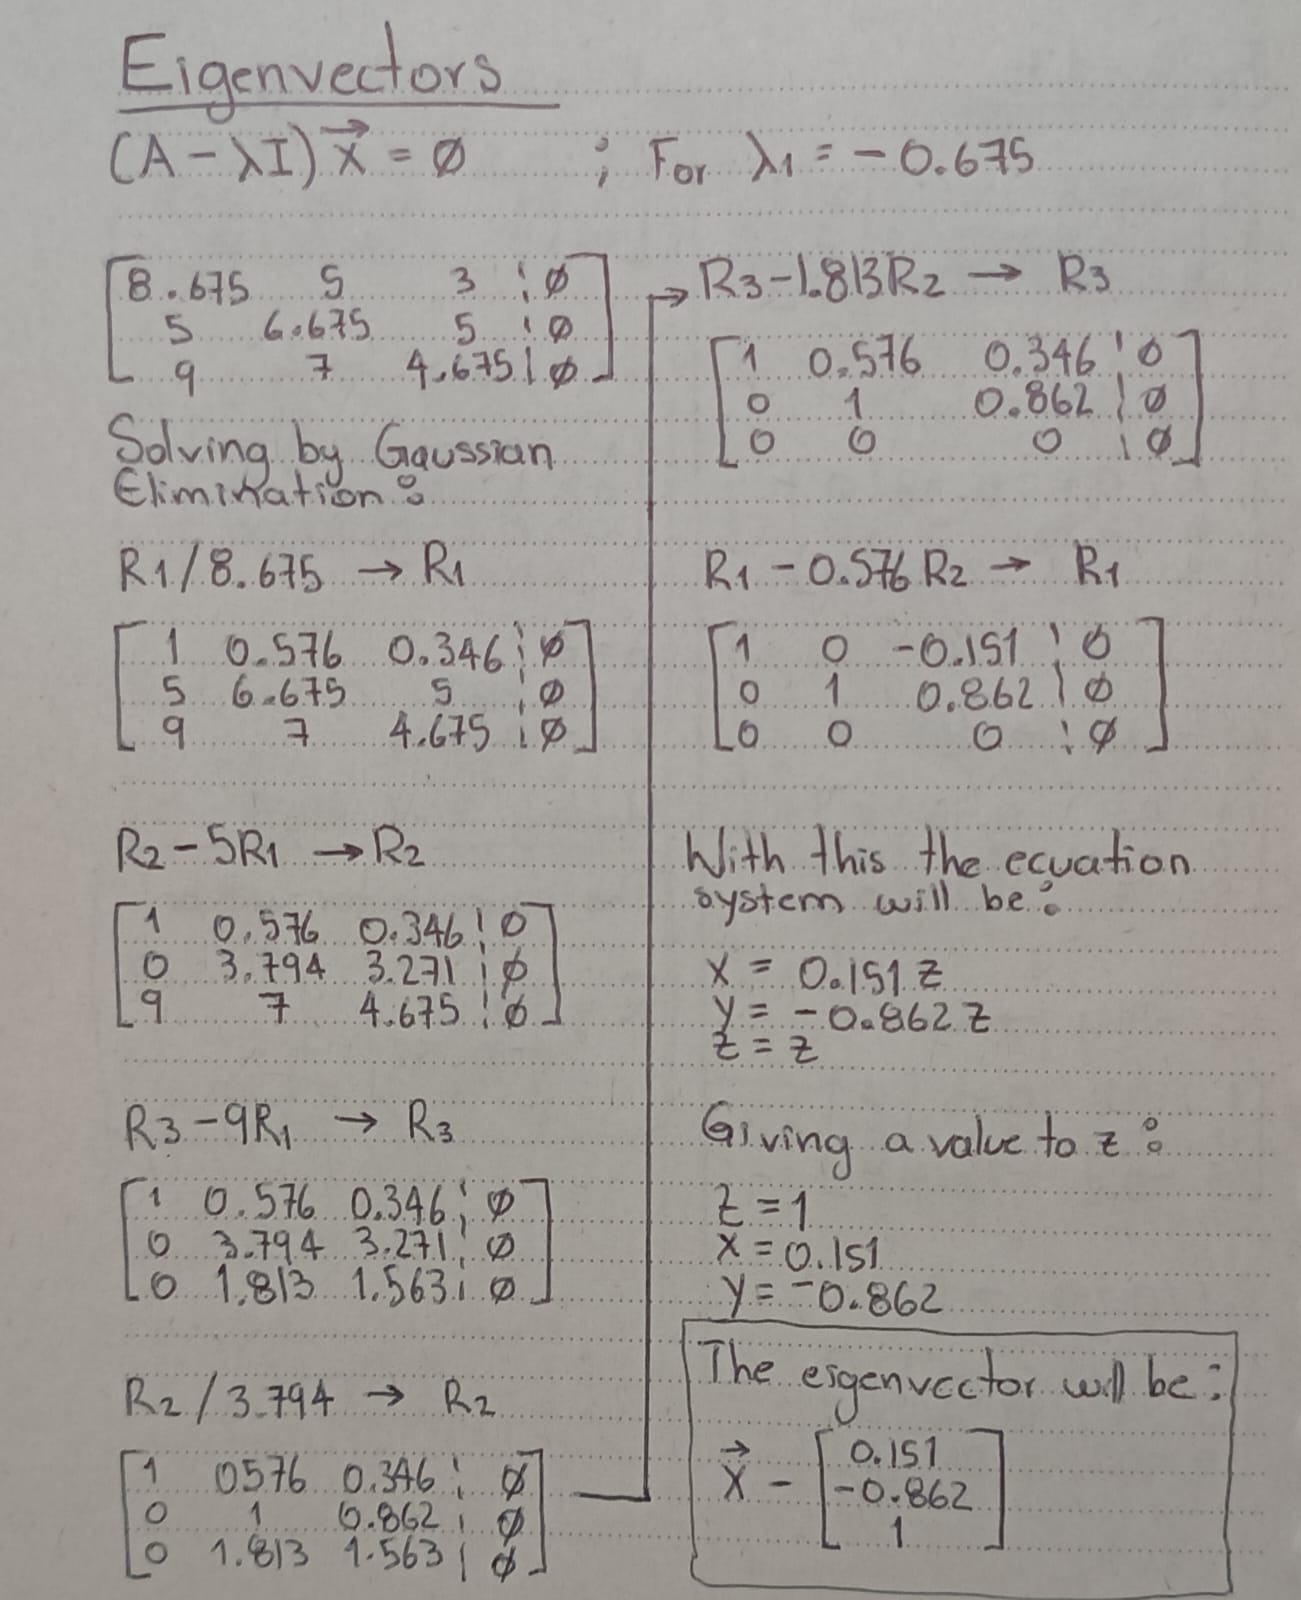 Eigenvectors
(A - λI) x⃗ = ∅ ; For λ1 = -0.675
[8.675 5 3 ¦ ∅]
[5 6.675 5 ¦ ∅]
[9 7 4.675 ¦ ∅]
Solving by Gaussian
Elimination:
R1/8.675 → R1
[1 0.576 0.346 ¦ ∅]
[5 6.675 5 ¦ ∅]
[9 7 4.675 ¦ ∅]
R2 - 5R1 → R2
[1 0.576 0.346 ¦ 0]
[0 3.794 3.271 ¦ ∅]
[9 7 4.675 ¦ ∅]
R3 - 9R1 → R3
[1 0.576 0.346 ¦ ∅]
[0 3.794 3.271 ¦ ∅]
[0 1.813 1.563 ¦ ∅]
R2 / 3.794 → R2
[1 0576 0.346 ¦ ∅]
[0 1 0.862 ¦ ∅]
[0 1.813 1.563 ¦ ∅]
→ R3 - 1.813R2 → R3
[1 0.576 0.346 ¦ 0]
[0 1 0.862 ¦ ∅]
[0 0 0 ¦ ∅]
R1 - 0.576 R2 → R1
[1 0 -0.151 ¦ 0]
[0 1 0.862 ¦ ∅]
[0 0 0 ¦ ∅]
With this the ecuation
system will be:
x = 0.151 z
y = -0.862 z
z = z
Giving a value to z:
z = 1
x = 0.151
y = -0.862
The eigenvector will be:
x⃗ - [0.151]
[-0.862]
[1]